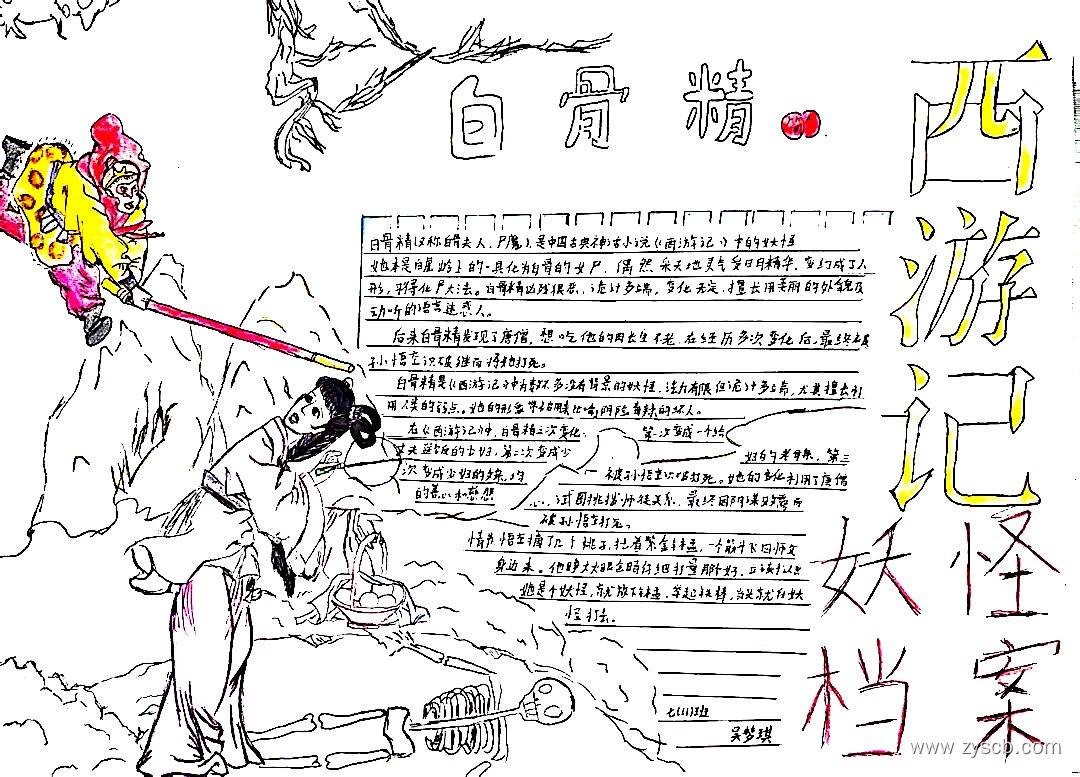 白骨精
西游记
妖怪
档案
白骨精(又称白骨夫人、尸魔)是中国古典神话小说《西游记》中的妖怪
她本是白虎岭上的一具化为白骨的女尸,偶然采天地灵气受日月精华,变幻成了人
形,习得化尸大法。白骨精诡计多端,变化无定,擅长用美丽的外貌及
动听的语言迷惑人。
后来白骨精发现了唐僧,想吃他的肉长生不老,在经历多次变化后,最终被
孙悟空识破继而将她打死。
白骨精是《西游记》中为数不多没有背景的妖怪,法力有限但诡计多端,尤其擅长利
用人类的弱点。她的形象常用来比喻阴险毒辣的坏人。
在《西游记》中,白骨精三次变化。第一次变成一个给
丈夫送饭的少妇,第二次变成少妇的老母亲,第三
次变成少妇的父亲,均被孙悟空识破打死。她的变化利用了唐僧
的善心和慈悲,试图挑拨师徒关系,最终因阴谋败露而
被孙悟空打死。
情节:悟空摘了几个桃子,拦着紫金钵盂,一个筋斗飞回师父
身边来。他睁大火眼金睛仔细打量那个女子,
她是个妖怪,就放下钵盂,举起铁棒,当头就打妖
怪打去。
吴梦琪
www.zyscb.com